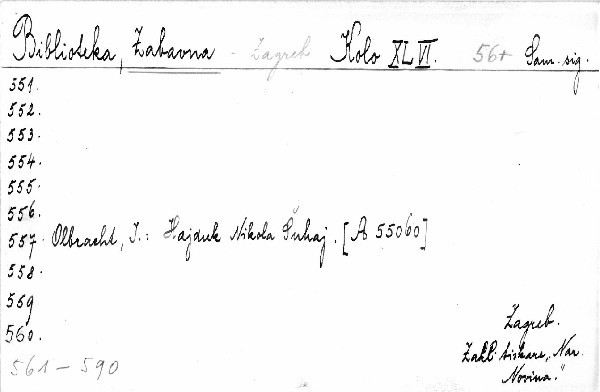 Biblioteka, Zabavna - Zagreb Kolo XLVI. 56+ Sam. sig.
551.
552.
553.
554.
555.
556.
557. Olbracht, I.: Hajduk Nikola Šuhaj. [A 55060]
558.
559
560.
561-590
Zagreb.
Zakl. tiskare „Nar.
Novina."